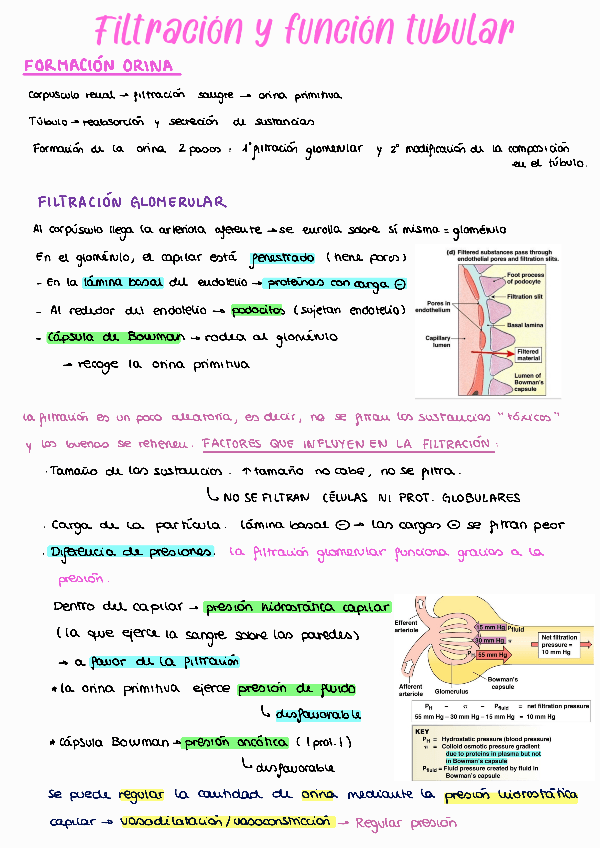 Filtración y función tubular
FORMACIÓN ORINA
Corpúsculo renal → filtración sangre → orina primitiva
Túbulo → reabsorción y secreción de sustancias
Formación de la orina 2 pasos: 1º filtración glomerular y 2º modificación de la composición
en el túbulo.
FILTRACIÓN GLOMERULAR
Al corpúsculo llega la arteriola aferente → se enrolla sobre sí misma = glomérulo
En el glomérulo, el capilar está fenestrado (tiene poros)
- En la lámina basal del endotelio → proteínas con carga ⊖
- Al rededor del endotelio → podocitos (sujetan endotelio)
- Cápsula de Bowman → rodea al glomérulo
→ recoge la orina primitiva
(d) Filtered substances pass through
endothelial pores and filtration slits.
Foot process
of podocyte
Filtration slit
Pores in
endothelium
Basal lamina
Capillary
lumen
Filtered
material
Lumen of
Bowman's
capsule
La filtración es un poco aleatoria, es decir, no se filtran las sustancias "tóxicas"
y las buenas se retienen. FACTORES QUE INFLUYEN EN LA FILTRACIÓN:
· Tamaño de las sustancias. ↑ tamaño no cabe, no se filtra.
↳ NO SE FILTRAN CÉLULAS NI PROT. GLOBULARES
· Carga de la partícula. lámina basal ⊖ → las cargas ⊖ se filtran peor
· Diferencia de presiones. La filtración glomerular funciona gracias a la
presión.
Dentro del capilar → presión hidrostática capilar
(la que ejerce la sangre sobre las paredes)
→ a favor de la filtración
* la orina primitiva ejerce presión de fluido
↳ desfavorable
* Cápsula Bowman → presión oncótica (↑prot.↑)
↳ desfavorable
Efferent
arteriole
15 mm Hg Pfluid
30 mm Hg π
PH 55 mm Hg
Net filtration
pressure =
10 mm Hg
Afferent
arteriole
Glomerulus
Bowman's
capsule
PH – π – Pfluid = net filtration pressure
55 mm Hg – 30 mm Hg – 15 mm Hg = 10 mm Hg
KEY
PH = Hydrostatic pressure (blood pressure)
π = Colloid osmotic pressure gradient
due to proteins in plasma but not
in Bowman's capsule
Pfluid = Fluid pressure created by fluid in
Bowman's capsule
Se puede regular la cantidad de orina mediante la presión hidrostática
capilar → vasodilatación/vasoconstricción → Regular presión